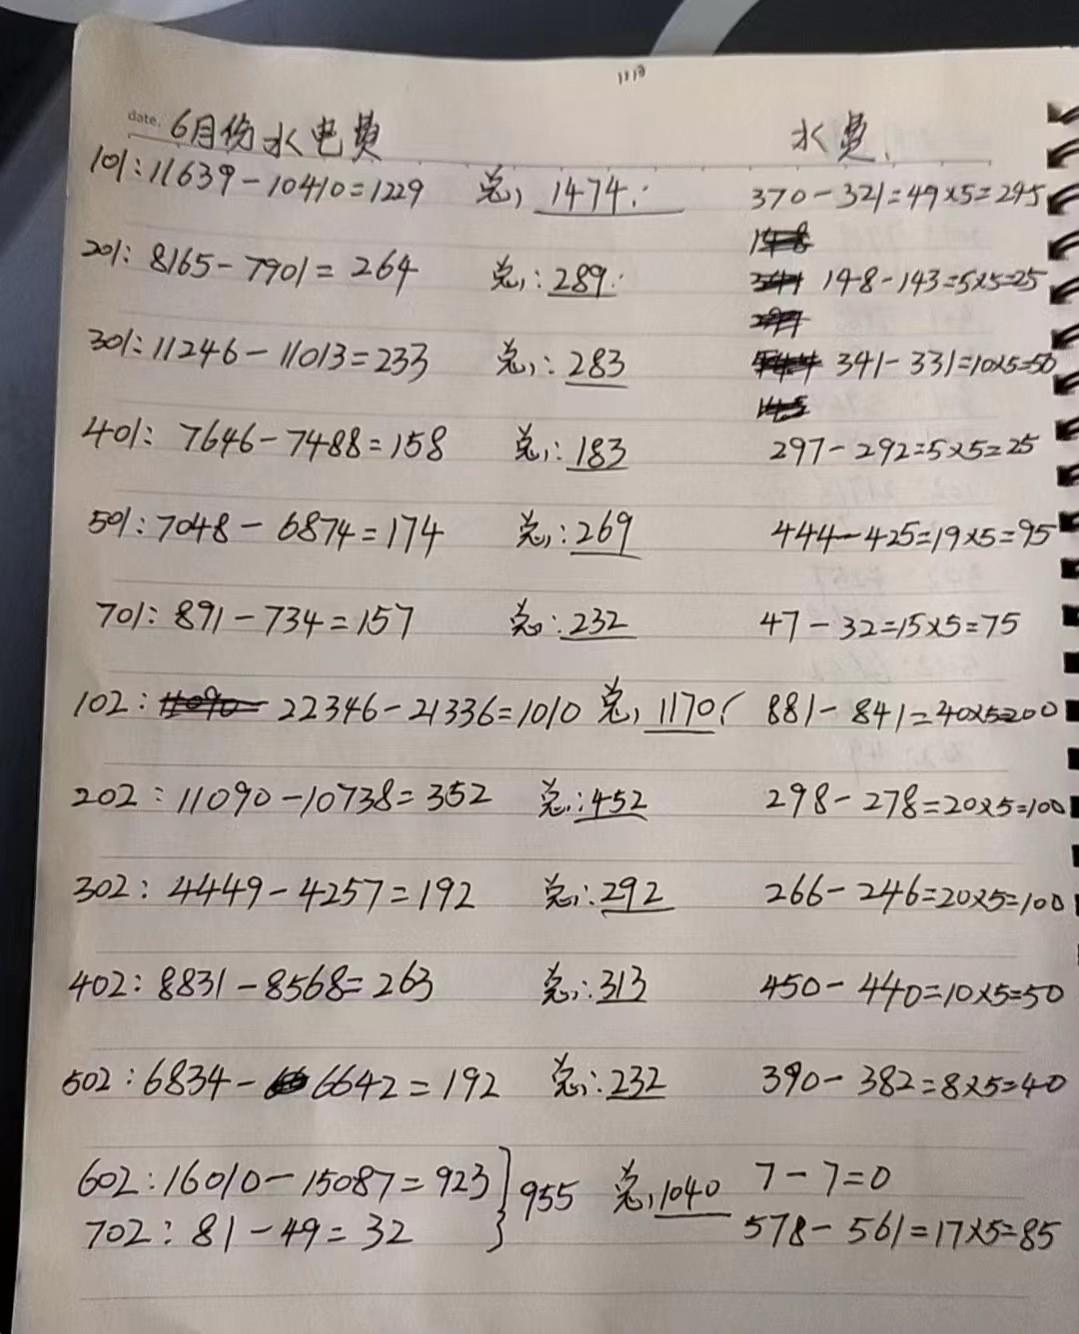 date. 6月份水电费 水费.
101:11639-10410=1229 总, 1474. 370-321=49×5=245
201: 8165-7901=264 总,: 289. 148-143=5×5=25
301:11246-11013=233 总,: 283 341-331=10×5=50
401: 7646-7488=158 总,: 183 297-292=5×5=25
501:7048-6874=174 总,: 269 444-425=19×5=95
701: 891-734=157 总: 232 47-32=15×5=75
102: 22346-21336=1010 总, 1170 881-841=40×5=200
202: 11090-10738=352 总,: 452 298-278=20×5=100
302: 4449-4257=192 总,: 292 266-246=20×5=100
402: 8831-8568=263 总,: 313 450-440=10×5=50
502: 6834-6642=192 总,: 232 390-382=8×5=40
602:16010-15087=923 } 955 总, 1040 7-7=0
702: 81-49=32 578-561=17×5=85